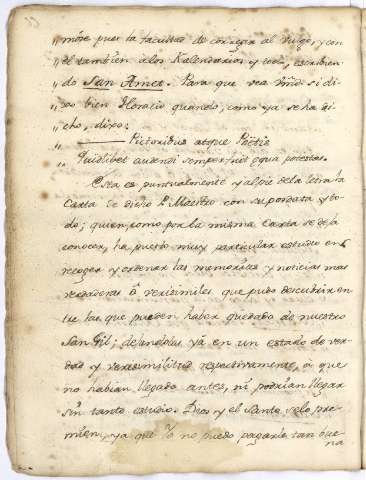 „ mòse pues la facultad de corregir al vulgo, y con
„ èl tambien a los Kalendarios y todo, escribien
„ do San Amer. Para que vea Vmd. si di
„ xo bien Horacio quando, como ya se ha di
„ cho, dixo:
„ —— Pictoribus atque Poëtis
„ Quidlibet audendi semper fuit æqua potestas.
Esta es puntualmente y al pie de la letra la
Carta de dicho P. Maestro con su postdata y to
do; quien, como por la misma Carta se deja
conocer, ha puesto muy particular estudio en
recoger y ordenar las memorias y noticias mas
verdaderas ò verisimiles que pudo descubrir en
tre las que pueden haber quedado de nuestro
San Gil; dejandolas yà en un estado de ver
dad y verisimilitud respectivamente, à que
no habian llegado antes, ni podrian llegar
sin tanto estudio. Dios y el Santo se lo pre
mien, ya que Yo no puedo pagarle tan bue
na